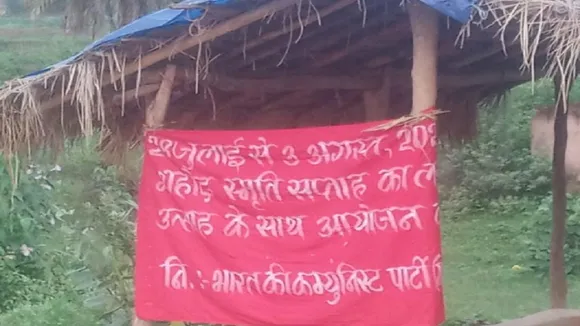 28 जुलाई से 3 अगस्त, 20
शहीद स्मृति सप्ताह का
उत्साह के साथ आयोजन
नि.:- भारत की कम्युनिस्ट पार्टी (